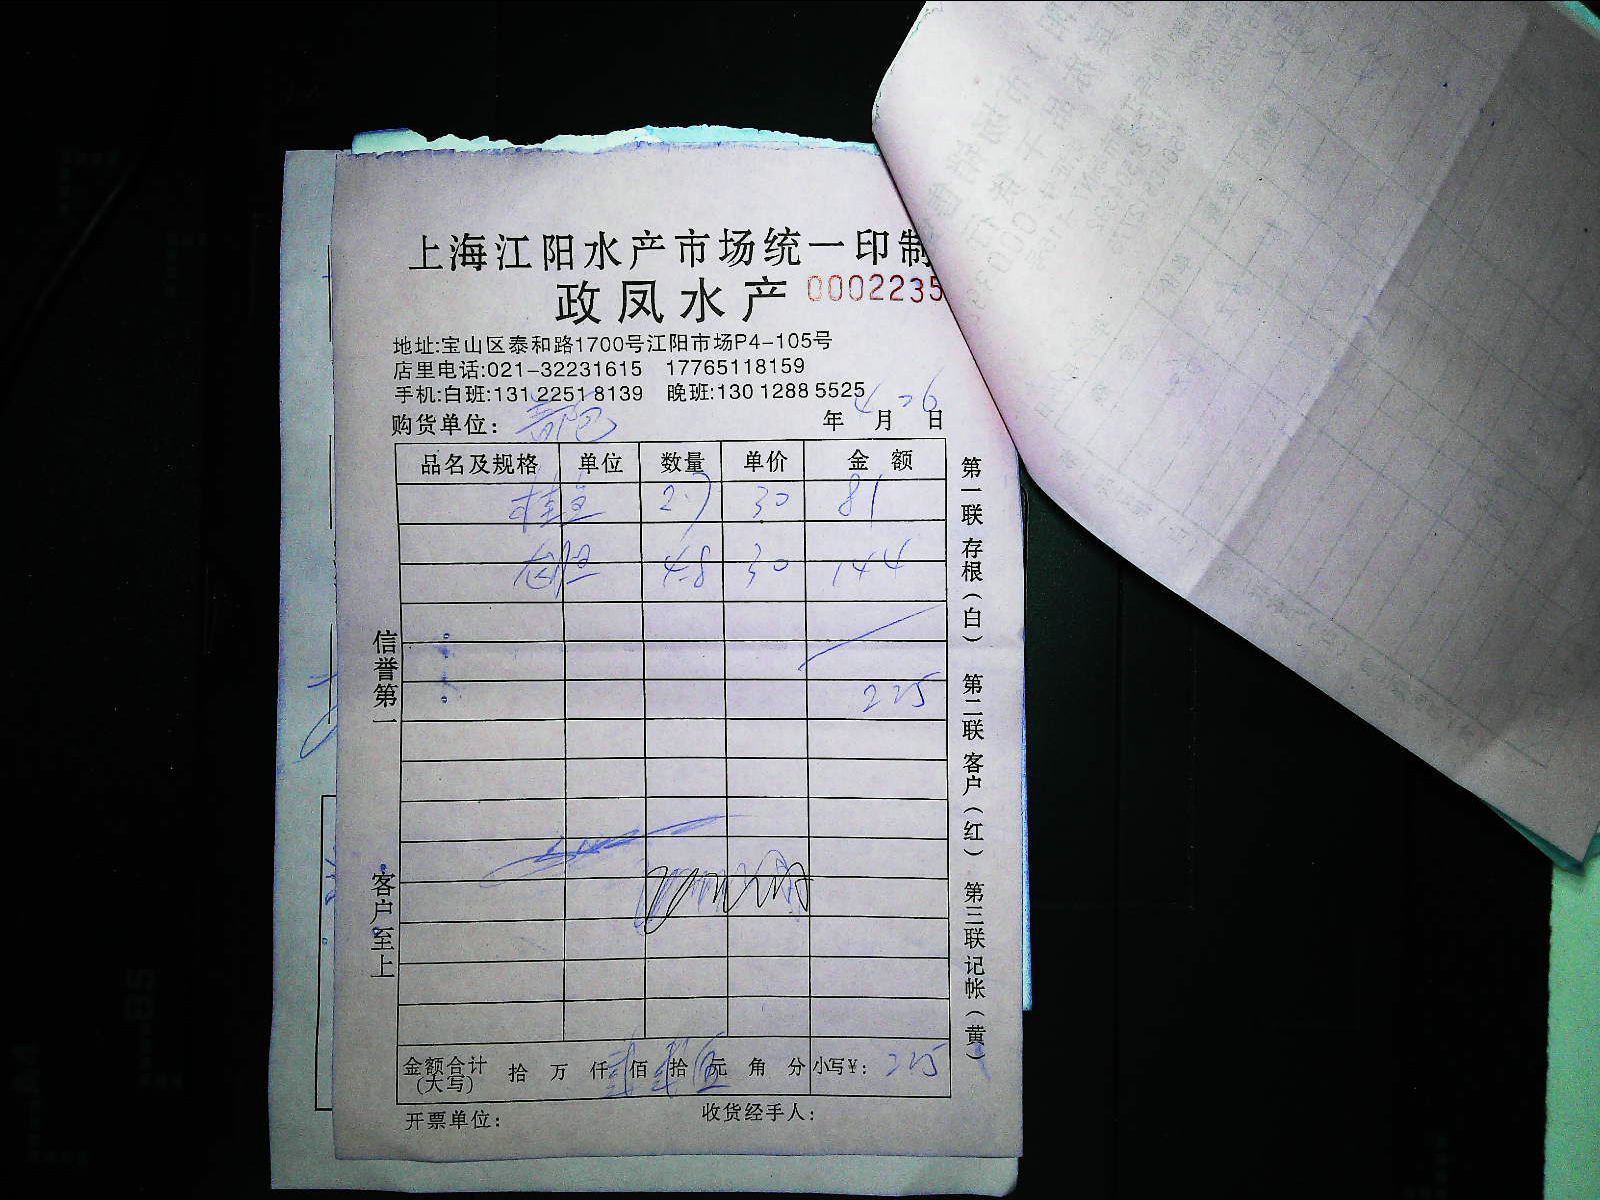 上海江阳水产市场统一印制
政凤水产 0002235
地址:宝山区泰和路1700号江阳市场P4-105号
店里电话:021-32231615 17765118159
手机:白班:131 2251 8139 晚班:130 1288 5525
购货单位: 年 4 月 26 日
品名及规格 单位 数量 单价 金额
桂鱼 2.7 30 81
4.8 30 144
225
金额合计(大写) 拾 万 仟 贰 佰 贰 拾 伍 元 角 分 小写¥: 225
开票单位: 收货经手人:
信誉第一
客户至上
第一联 存根(白) 第二联 客户(红) 第三联 记帐(黄)